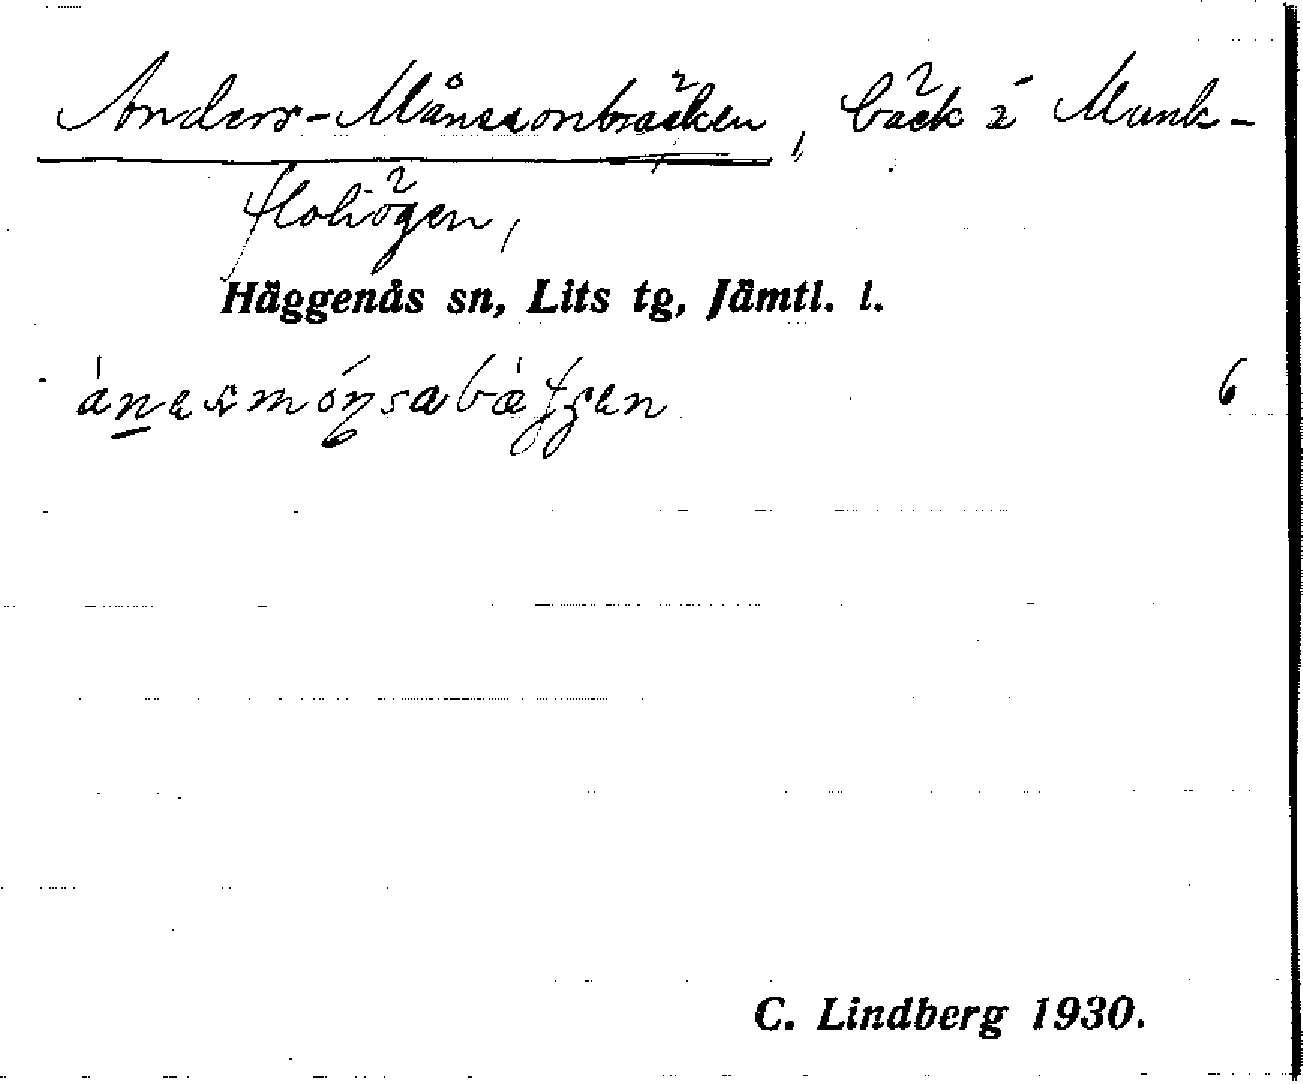 Anders-Månssonbäcken, bäck i Munk-
flohögen,
Häggenås sn, Lits tg, Jämtl. l.
6
C. Lindberg 1930.